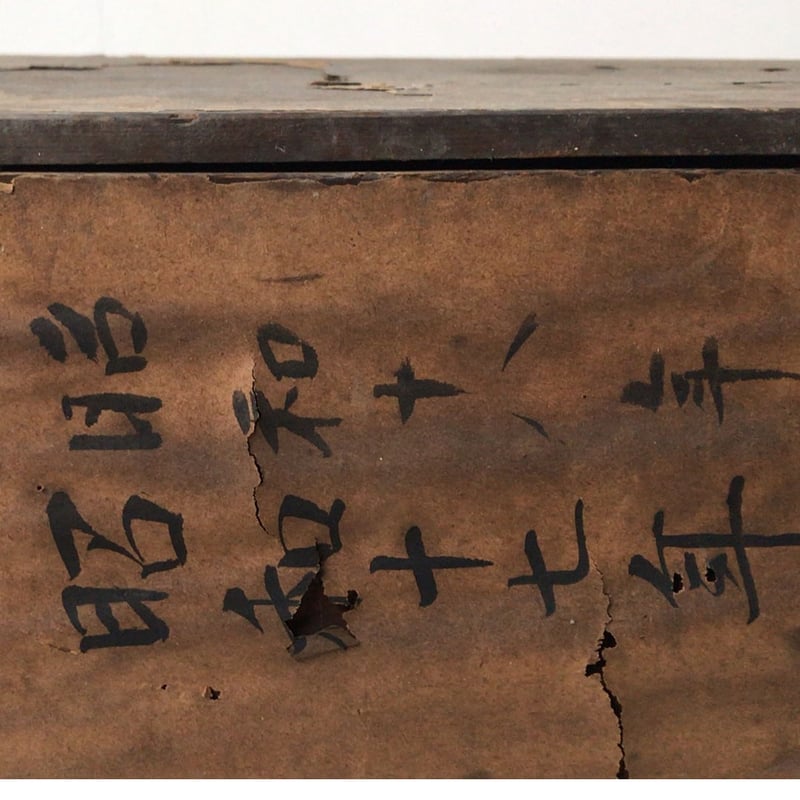 昭和十八年
昭和十七年